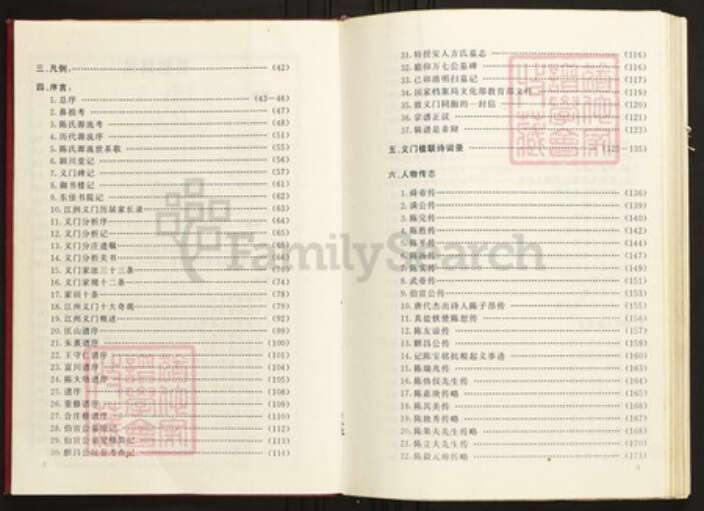 三.凡例: (42)
四.序言:
1.总序 (43—46)
2.鼻祖考 (47)
3.陈氏源流考 (48)
4.历代源流序 (51)
5.陈氏源流世系歌 (55)
6.颍川堂记 (56)
7.义门碑记 (57)
8.御书楼记 (61)
9.东佳书院记 (62)
10.江州义门历届家长录 (63)
11.义门分析序 (64)
12.义门分析记 (65)
13.义门分庄遗嘱
14.义门分析关书
15.义门家法三十三条
16.义门家规十二条 (74)
17.家训十条 (78)
18.江州义门十大奇观 (79)
19.江州义门概述 (92)
20.匡山谱序 (99)
21.朱熹谱序 (100)
22.王守仁谱序 (101)
23.富川谱序 (104)
24.陈大 谱序 (105)
25.谱序 (108)
26.重修谱序 (109)
27.合庄修谱序 (110)
28.伯宣公墓 记 (112)
29.伯宣公 记 (113)
30.
31.特授安人方氏墓志 (116)
32.赠仰方七公墓碑 (116)
33.己卯清明扫墓记 (117)
34.国家档案局文化部教育部文件 (119)
35.致义门同胞的一封信 (120)
36.宗谱正误 (121)
37.辑谱是非辩 (123)
五.义门楹联诗词录 (125—135)
六.人物传志
1.舜帝传 (136)
2.满公传 (139)
3.陈完传 (140)
4.陈胜传 (142)
5.陈平传 (144)
6. (147)
7.陈实传 (149)
8.武帝传 (151)
9.伯宣公传 (153)
10.唐代杰出诗人陈子昂传 (155)
11.真盐铁使陈恕传 (156)
12.陈友谅传 (157)
13.麒昌公传 (159)
14.记陈玉铭抗粮起义事迹 (160)
15.陈瑞兆传 (163)
16.陈恪仪先生传 (164)
17.陈嘉庚传略 (165)
18.陈其美传 (166)
19.陈独秀传略 (167)
20.陈果夫先生传略 (168)
21.陈立夫先生传 (170)
22.陈毅元帅传略 (173)
FamilySearch